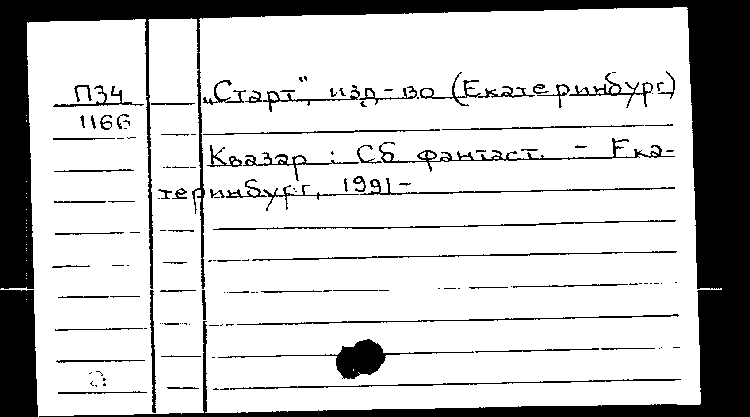 П34 „Старт", изд-во (Екатеринбург)
1166
Квазар : Сб фантаст. - Ека-
теринбург, 1991-